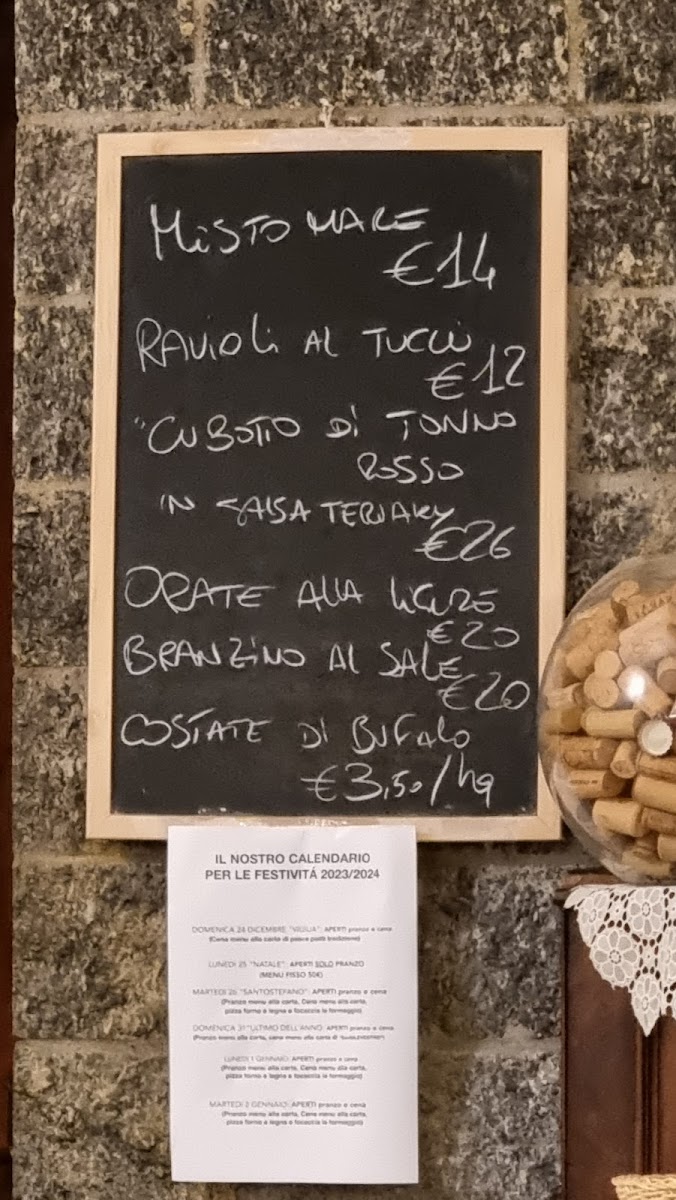 MISTO MARE
€14
RAVIOLI AL TUCCÙ
€12
"CUBOTTO DI TONNO
ROSSO
IN SALSA TERIAKY
€26
ORATE ALLA LIGURE
€20
BRANZINO AL SALE
€20
COSTATE DI BUFALO
€3,50/hg
IL NOSTRO CALENDARIO
PER LE FESTIVITÁ 2023/2024
DOMENICA 24 DICEMBRE "VIGILIA": APERTI pranzo e cena
(Cena menu alla carta di pesce piatti tradizione)
LUNEDI 25 "NATALE": APERTI SOLO PRANZO
(MENU FISSO 50€)
MARTEDI 26 "SANTOSTEFANO": APERTI pranzo e cena
(Pranzo menu alla carta, Cena menu alla carta,
pizza forno a legna e focaccia la formaggio)
DOMENICA 31 "ULTIMO DELL'ANNO: APERTI pranzo e cena
(Pranzo menu alla carta, cena menu alla carta di
LUNEDI 1 GENNAIO: APERTI pranzo e cena
(Pranzo menu alla carta, Cena menu alla carta,
pizza forno a legna e focaccia la formaggio)
MARTEDI 2 GENNAIO: APERTI pranzo e cena
(Pranzo menu alla carta, Cena menu alla carta,
pizza forno a legna e focaccia la formaggio)